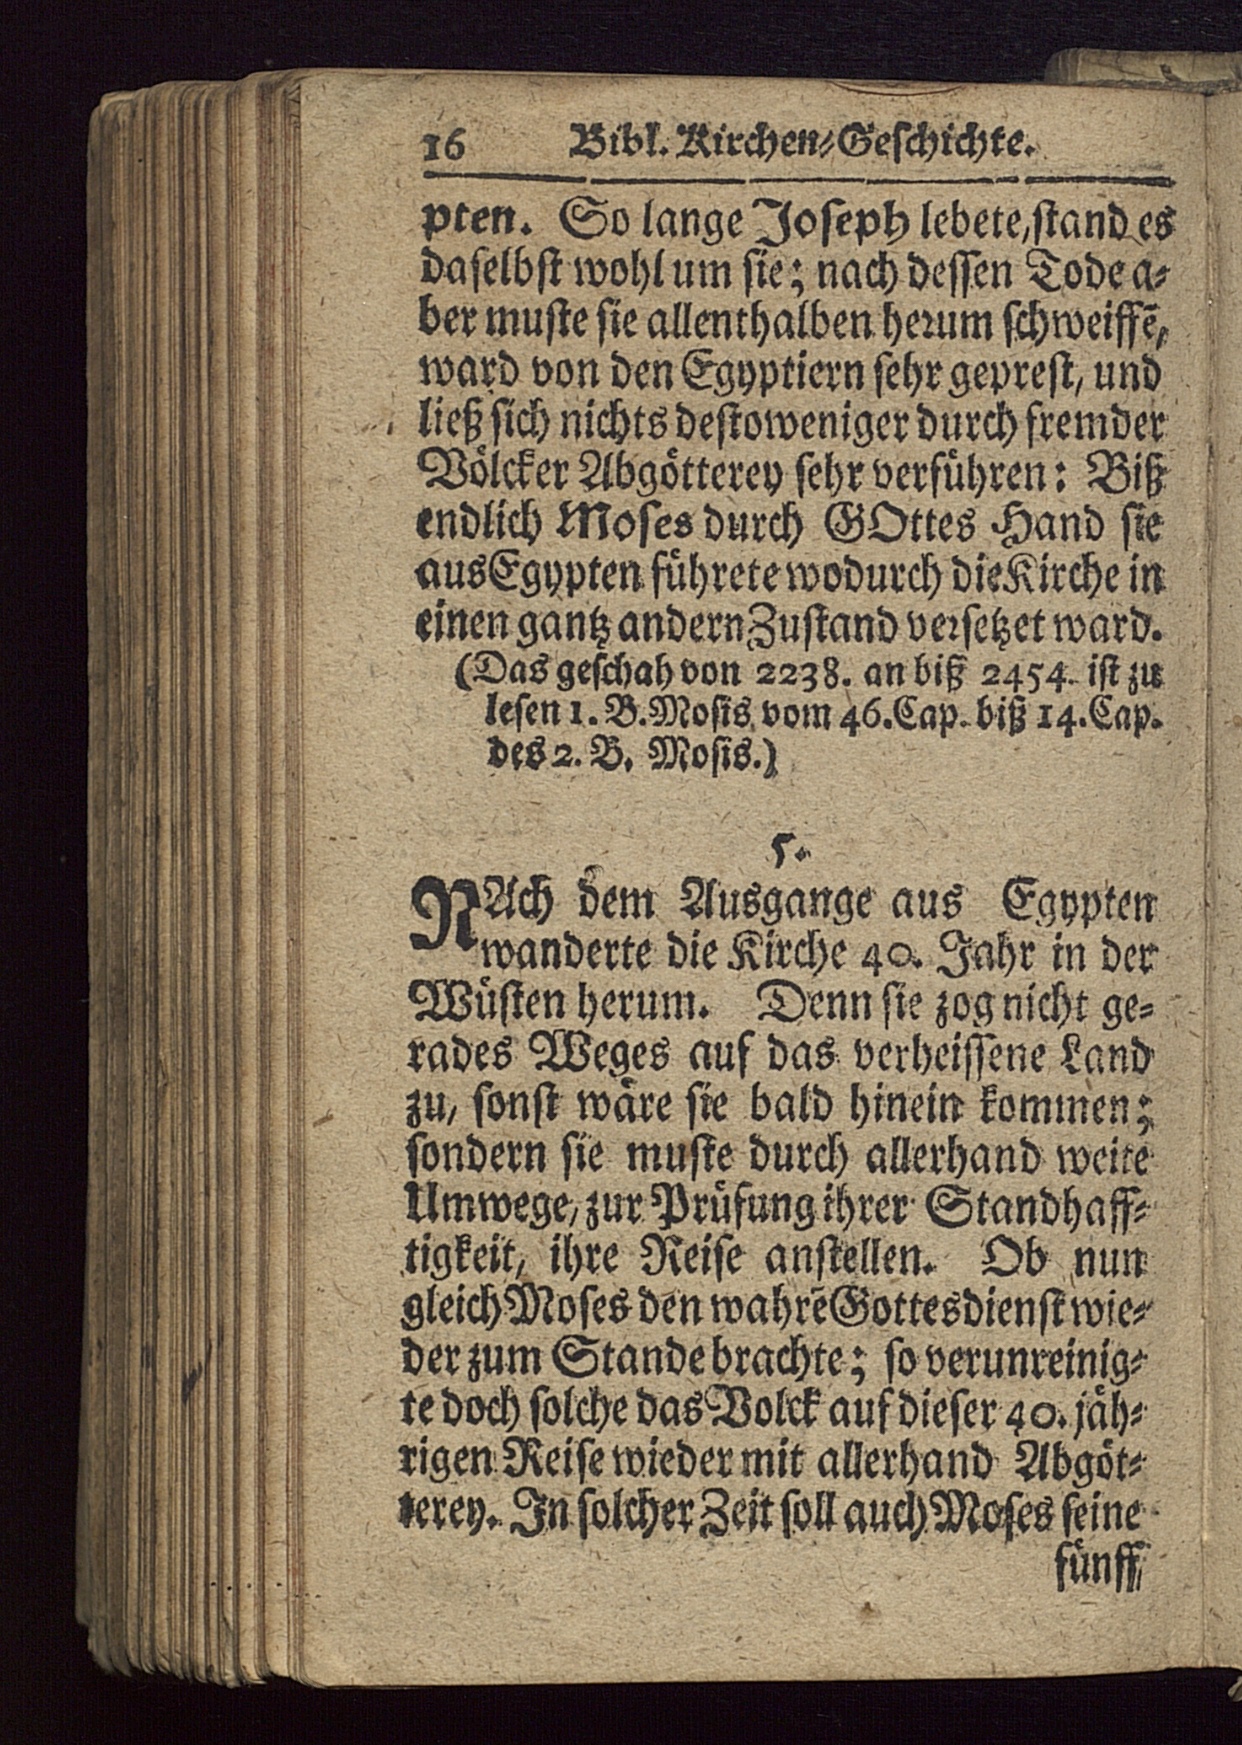 16 Bibl. Kirchen-Geschichte.
pten. So lange Joseph lebete, stand es
daselbst wohl um sie; nach dessen Tode a-
ber muste sie allenthalben herum schweiffē,
ward von den Egyptiern sehr geprest, und
ließ sich nichts destoweniger durch fremder
Völcker Abgötterey sehr verführen: Biß
endlich Moses durch GOttes Hand sie
aus Egypten führete wodurch die Kirche in
einen gantz andern Zustand versetzet ward.
(Das geschah von 2238. an biß 2454. ist zu
lesen 1. B. Mosis vom 46. Cap. biß 14. Cap.
des 2. B. Mosis.)
5.
NAch dem Ausgange aus Egypten
wanderte die Kirche 40. Jahr in der
Wüsten herum. Denn sie zog nicht ge-
rades Weges auf das verheissene Land
zu, sonst wäre sie bald hinein kommen;
sondern sie muste durch allerhand weite
Umwege, zur Prüfung ihrer Standhaff-
tigkeit, ihre Reise anstellen. Ob nun
gleich Moses den wahrē Gottesdienst wie-
der zum Stande brachte; so verunreinig-
te doch solche das Volck auf dieser 40. jäh-
rigen Reise wieder mit allerhand Abgöt-
terey. In solcher Zeit soll auch Moses seine
fünff